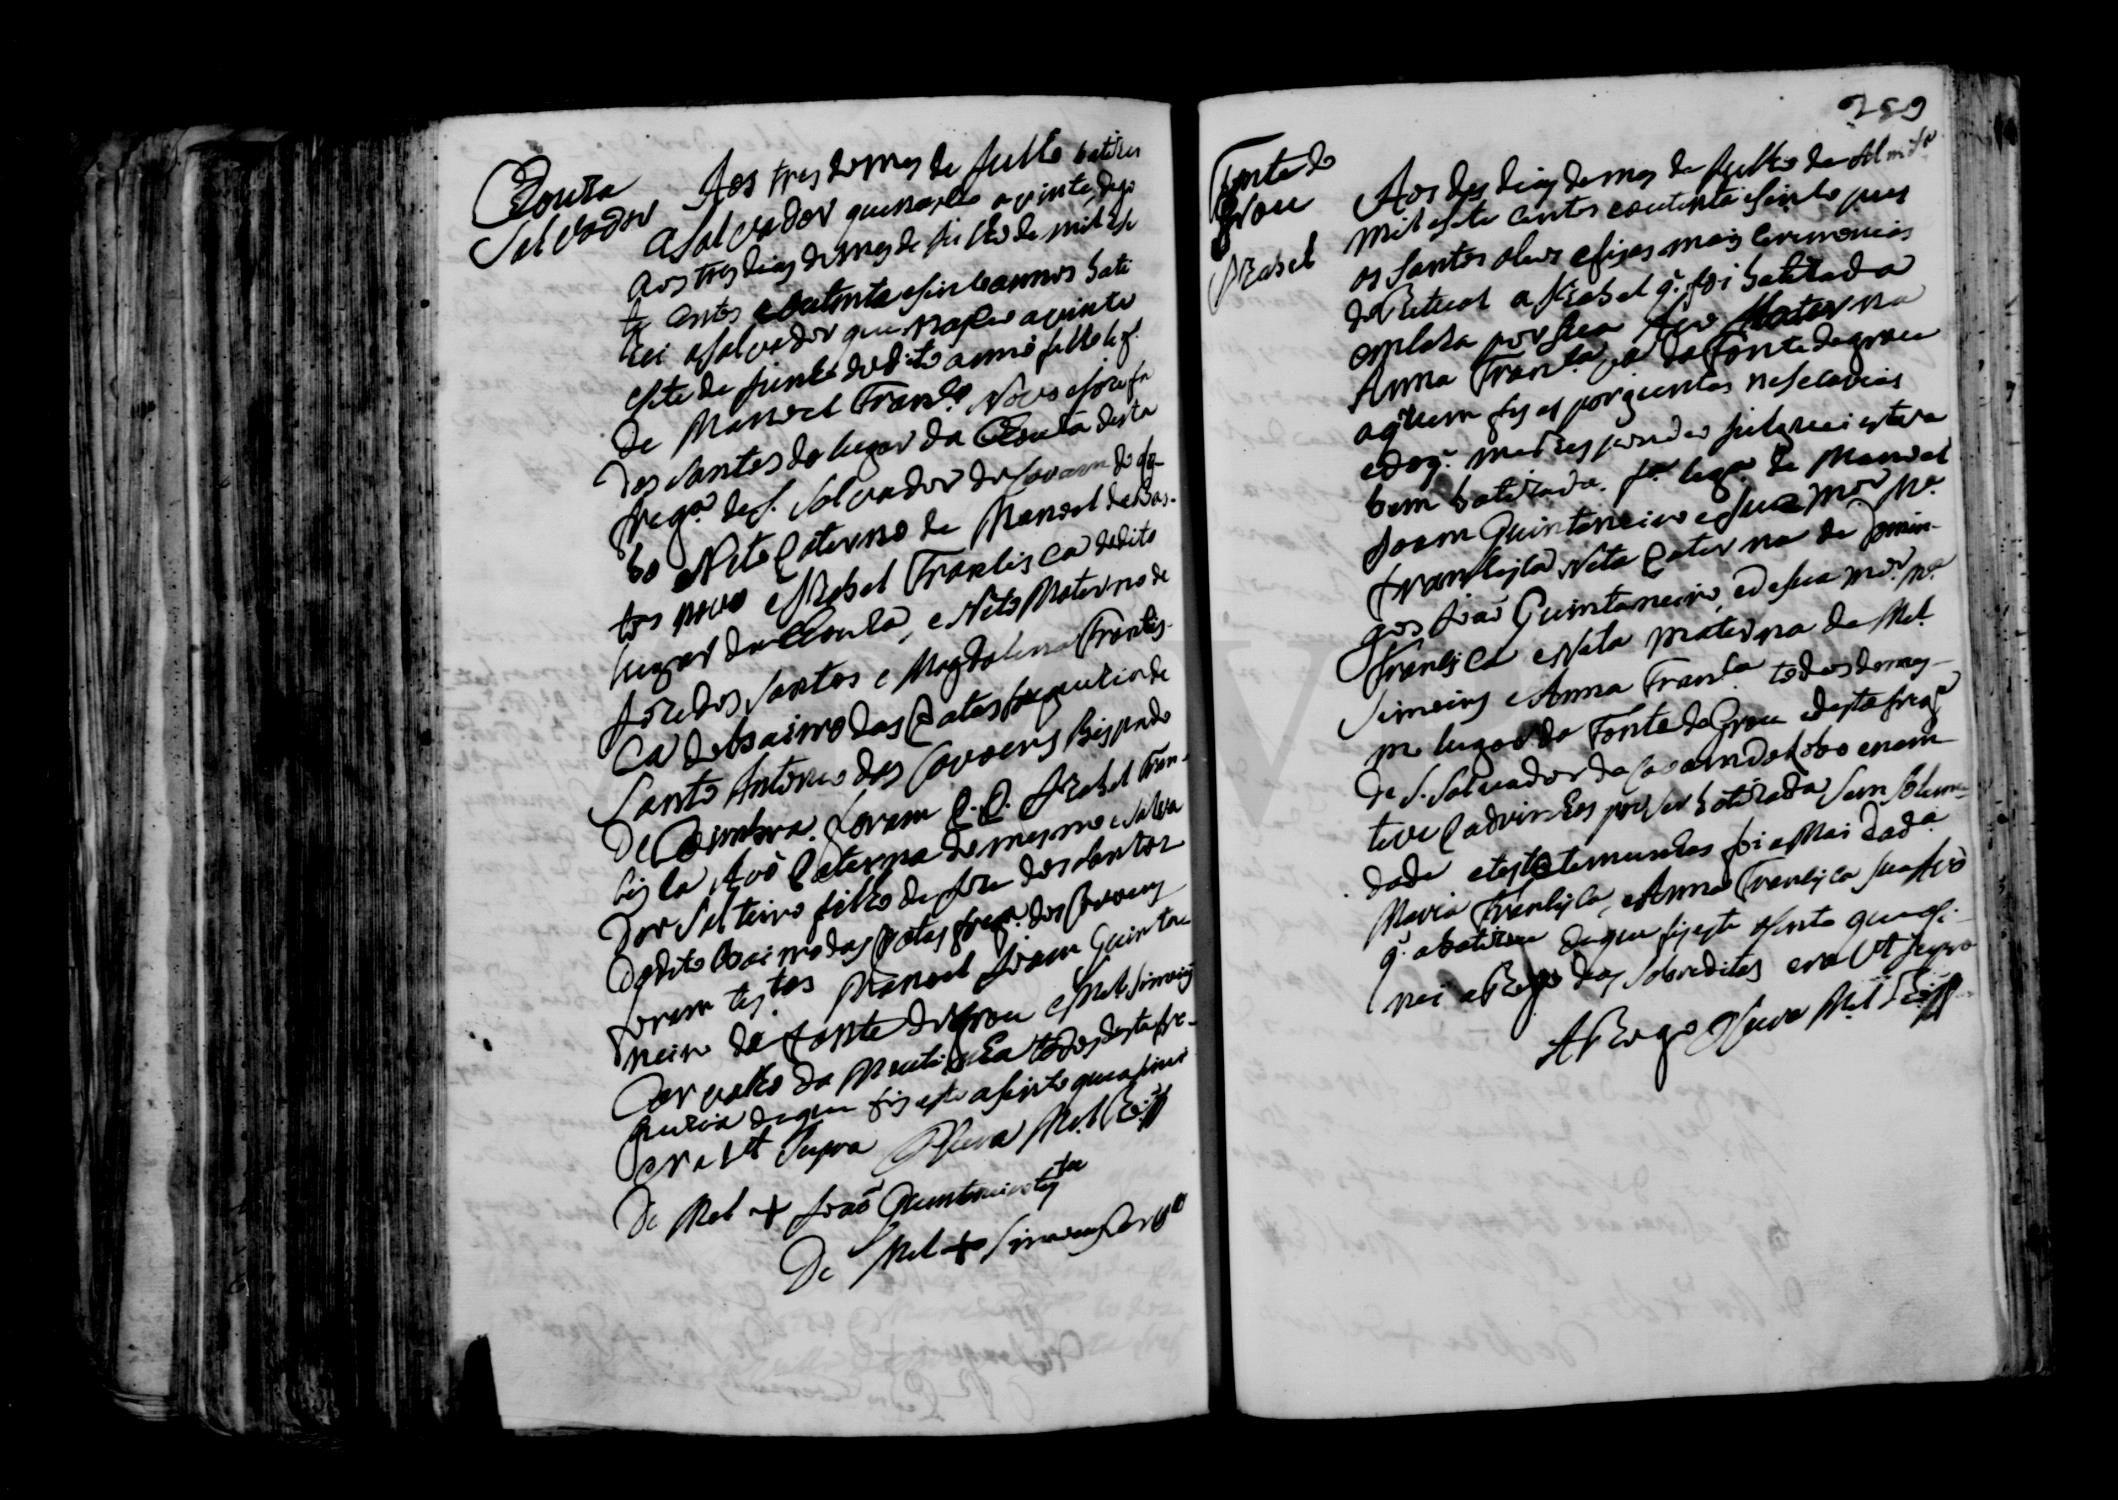 Couta
Salvador
Aos tres do mes de Julho batizei
a Salvador que nasceo a vinte digo
aos tres dias do mes de Julho de mil e se
te centos e outenta e sinco annos bati
zei a Salvador que nasceo a vinte
e sete de Junho do dito anno filho leg.
de Manoel Franco. Novo e Jozefa
dos Santos do lugar da Couta desta
freg.ª de S. Salvador do Covam do Lo-
bo e Neto Paterno de Manoel de Bas-
tos novo e Izabel Francisca do dito
lugar da Couta, e Neto Materno de
Joze dos Santos e Magdalena Francis-
ca do bairro das Patas freguezia de
Santo Antonio dos Covoens Bispado
de Coimbra. foram P.P. Izabel Fran-
cisca Avó Paterna do mesmo e Salva
dor Solteiro filho de Joze dos Santos
do dito bairro das Patas freg.ª dos Covoens
foram testas Manoel Joam Quinta
neiro da Fonte do Grou e M.el Simoens
Carvalho da todos desta fre-
guezia de que fis este asento que asinei
era Ut Supra O Cura M.el
De M.el + João Quintaneiro testa
De M.el + Simoens Carv.º
289
Fonte do
Grou
Izabel
Aos des dias do mes de Julho de
mil e sete centos e outenta e sinco pus
os Santos oleos e fis as mais ceremonias
do Ritual a Izabel q. foi batizada
em caza por sua Avo Materna
Anna Fran.ca da Fonte do grou
a quem fis as perguntas nesesarias
e do q. me respondeo julguei estava
bem batizada. f.ª leg.ª de Manoel
Joam Quintaneiro e sua m.er M.ª
Francisca Neta Paterna de Domin-
gos João Quintaneiro, e de sua m.er M.ª
Francisca e Neta materna de M.el
Simoens e Anna Fran.ca todos do mes-
mo lugar da Fonte do Grou desta freg.ª
de S. Salvador do Covam do Lobo e nam
teve Padrinhos por ser batizada sem solemni-
dade e testemunhas foi a Mai dada
Maria Francisca, e Anna Francisca sua Avó
q. a batizou de que fis este asento que asi-
nei a Rogo das sobreditas era Ut supra
A Rogo O Cura M.el